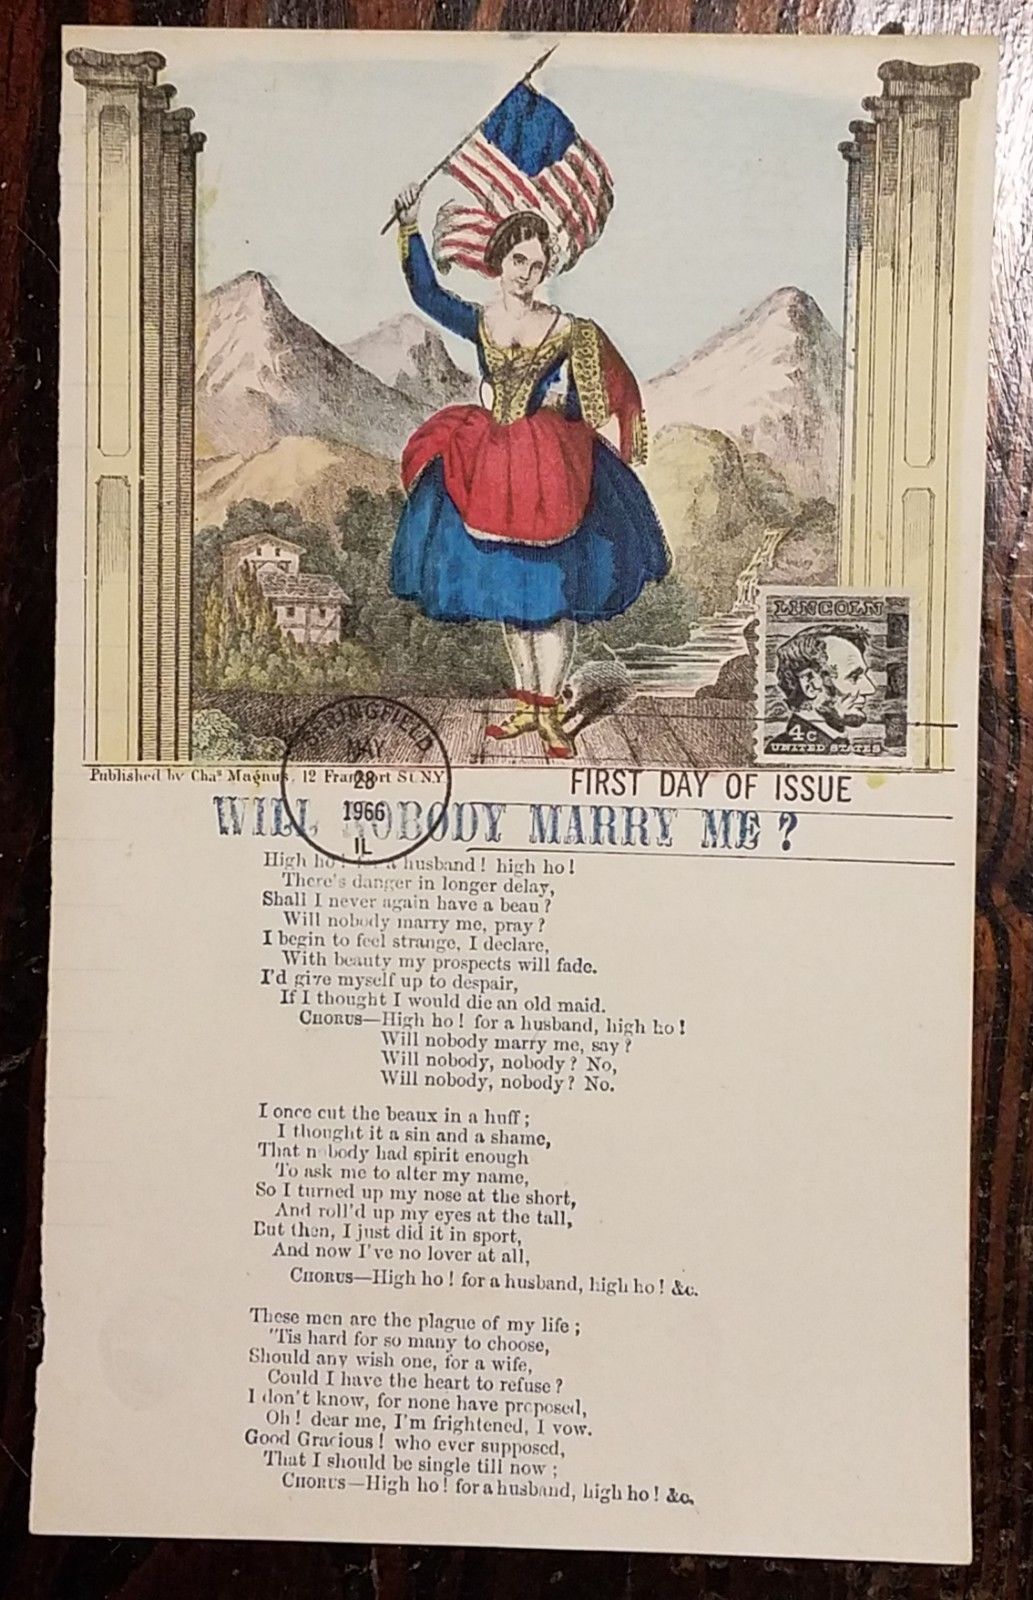 LINCOLN
4c
UNITED STATES
SPRINGFIELD
MAY
28
1966
IL
Published by Chas Magnus, 12 Frankfort St. N.Y.
FIRST DAY OF ISSUE
WILL NOBODY MARRY ME?
High ho! for a husband! high ho!
There's danger in longer delay,
Shall I never again have a beau?
Will nobody marry me, pray?
I begin to feel strange, I declare,
With beauty my prospects will fade.
I'd give myself up to despair,
If I thought I would die an old maid.
CHORUS—High ho! for a husband, high ho!
Will nobody marry me, say?
Will nobody, nobody? No,
Will nobody, nobody? No.
I once cut the beaux in a huff;
I thought it a sin and a shame,
That n body had spirit enough
To ask me to alter my name,
So I turned up my nose at the short,
And roll'd up my eyes at the tall,
But then, I just did it in sport,
And now I've no lover at all,
CHORUS—High ho! for a husband, high ho! &c.
These men are the plague of my life;
'Tis hard for so many to choose,
Should any wish one, for a wife,
Could I have the heart to refuse?
I don't know, for none have proposed,
Oh! dear me, I'm frightened, I vow.
Good Gracious! who ever supposed,
That I should be single till now;
CHORUS—High ho! for a husband, high ho! &c.